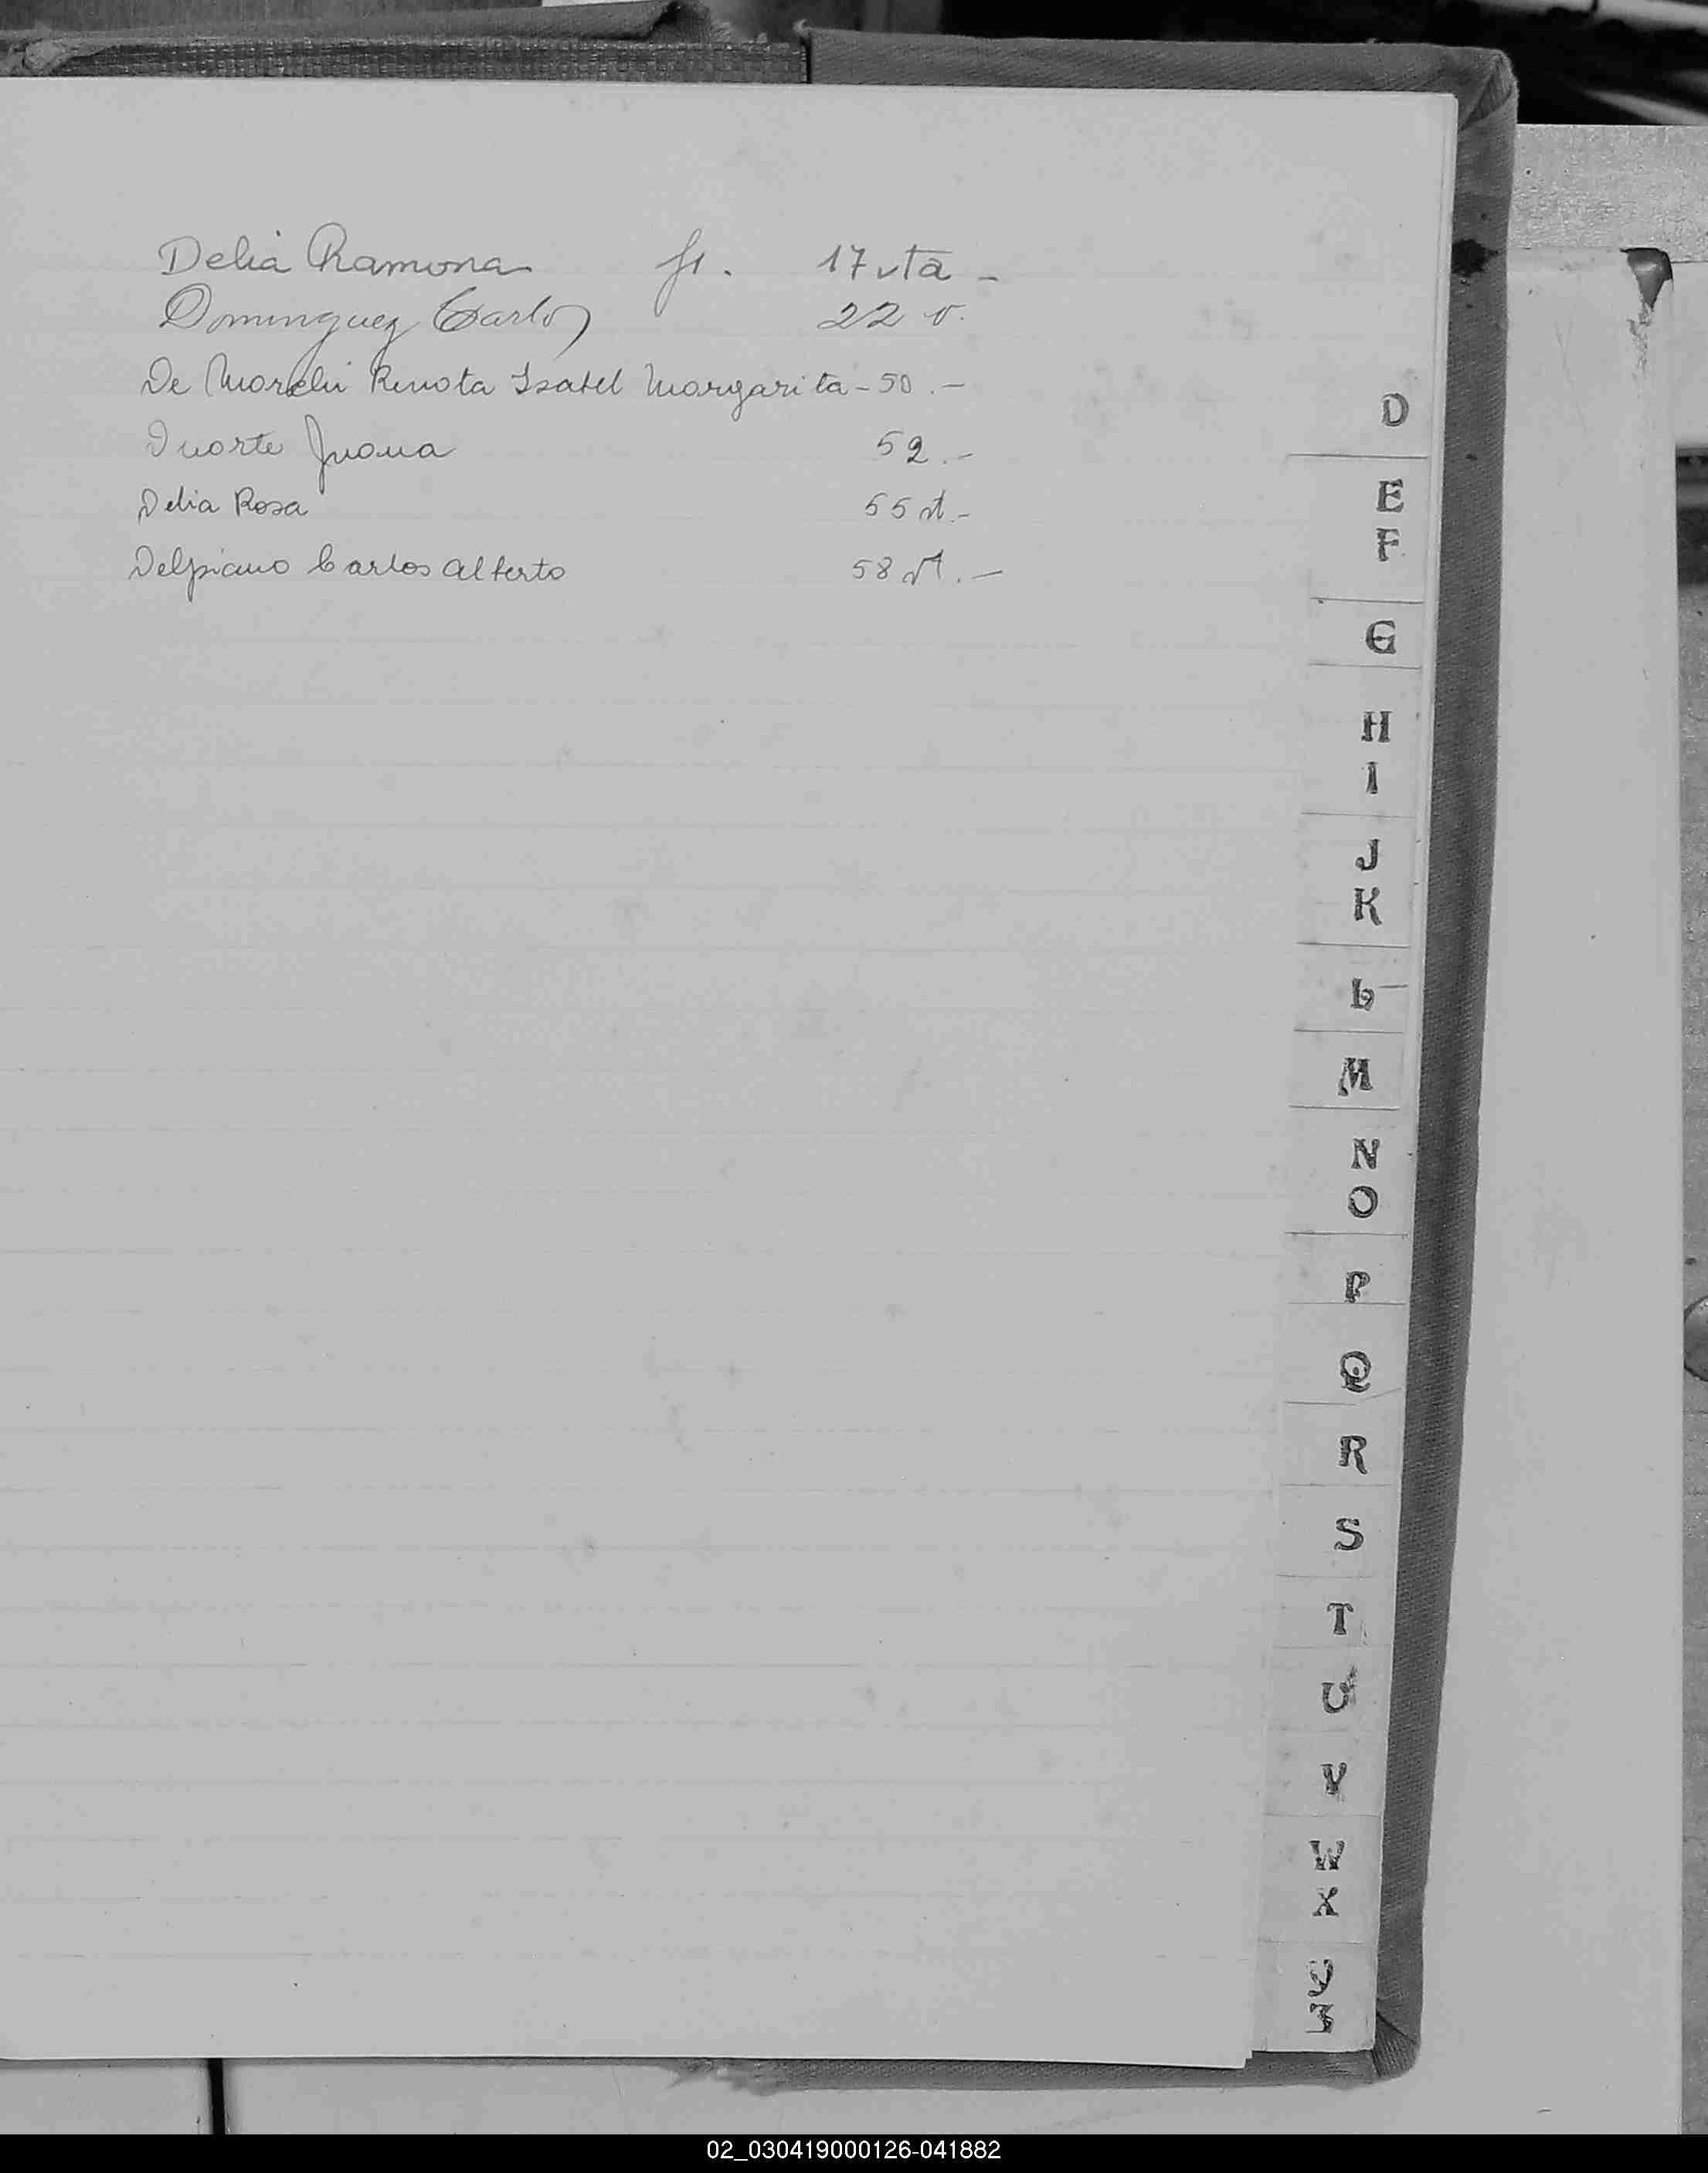 Delia Ramona fs. 17 vta -
Dominguez Carlos 22 v.
De Morchi Renota Isabel Margarita - 50.-
Duarte Juana 52.-
Delia Rosa 55 vt.-
Delpiano Carlos Alberto 58 vt.-
D
E
F
G
H
I
J
K
L
M
N
O
P
Q
R
S
T
U
V
W
X
Y
Z
02_030419000126-041882